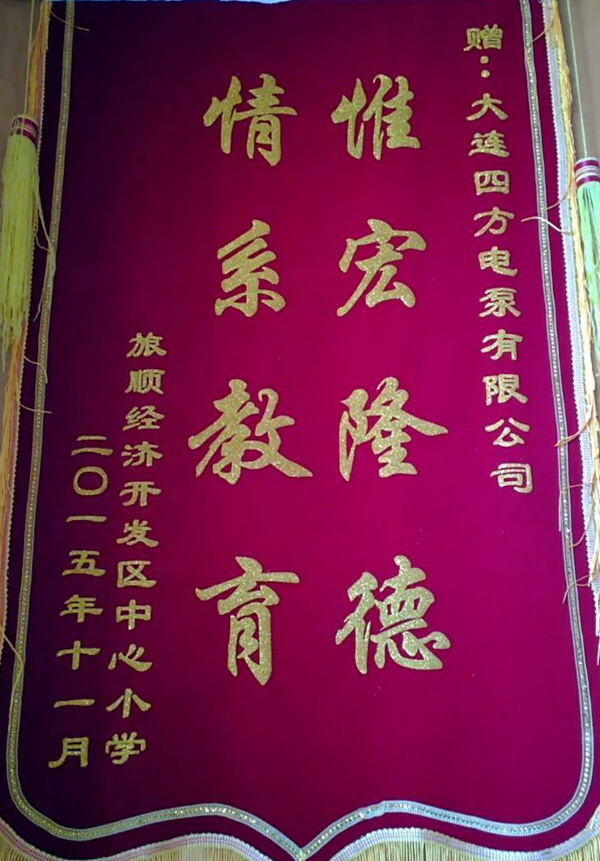 赠：大连四方电泵有限公司
惟宏隆德
情系教育
旅顺经济开发区中心小学
二〇一五年十一月